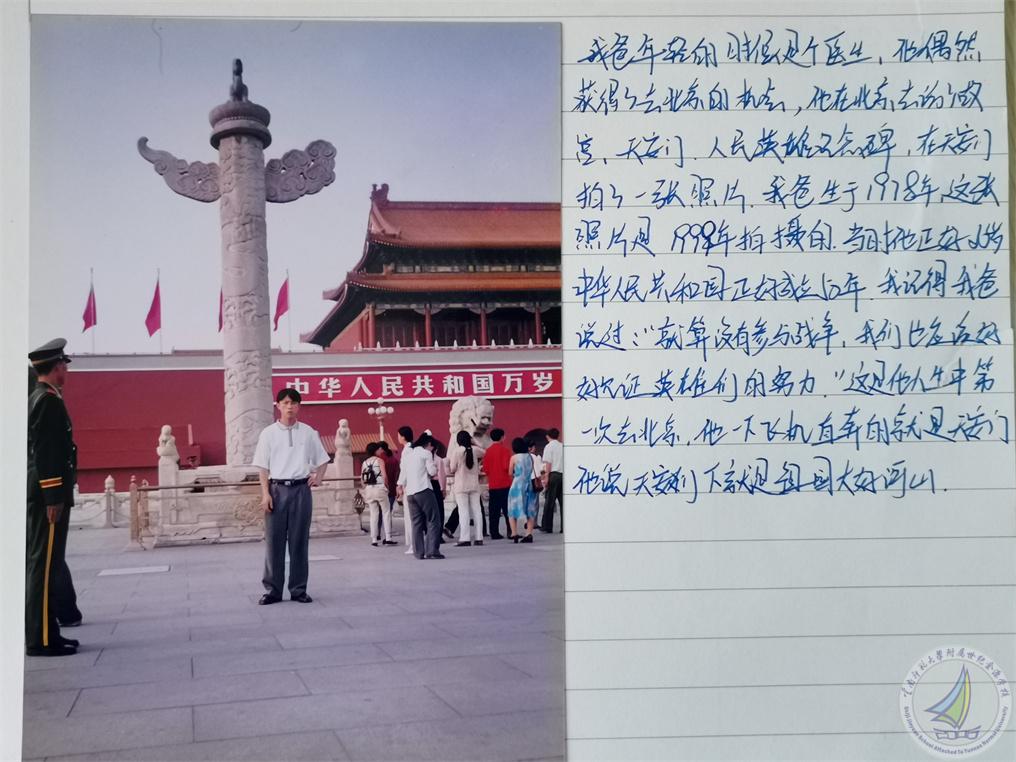 中华人民共和国万岁
我爸年轻的时候是个医生，他偶然
获得了去北京的机会，他在北京去访了故
宫、天安门、人民英雄纪念碑，在天安门
拍了一张照片，我爸生于1978年，这张
照片是1999年拍摄的，当时他正好21岁
中华人民共和国正好成立50年，我记得我爸
说过：“就算没有参与战争，我们也应该好
好见证英雄们的努力.”这是他人生中第
一次去北京，他一下飞机直奔的就是天安门
他说天安门下就是祖国大好河山.
云南师范大學附属世纪金源学校
Shiji Jinyuan School Attached To Yunnan Normal University